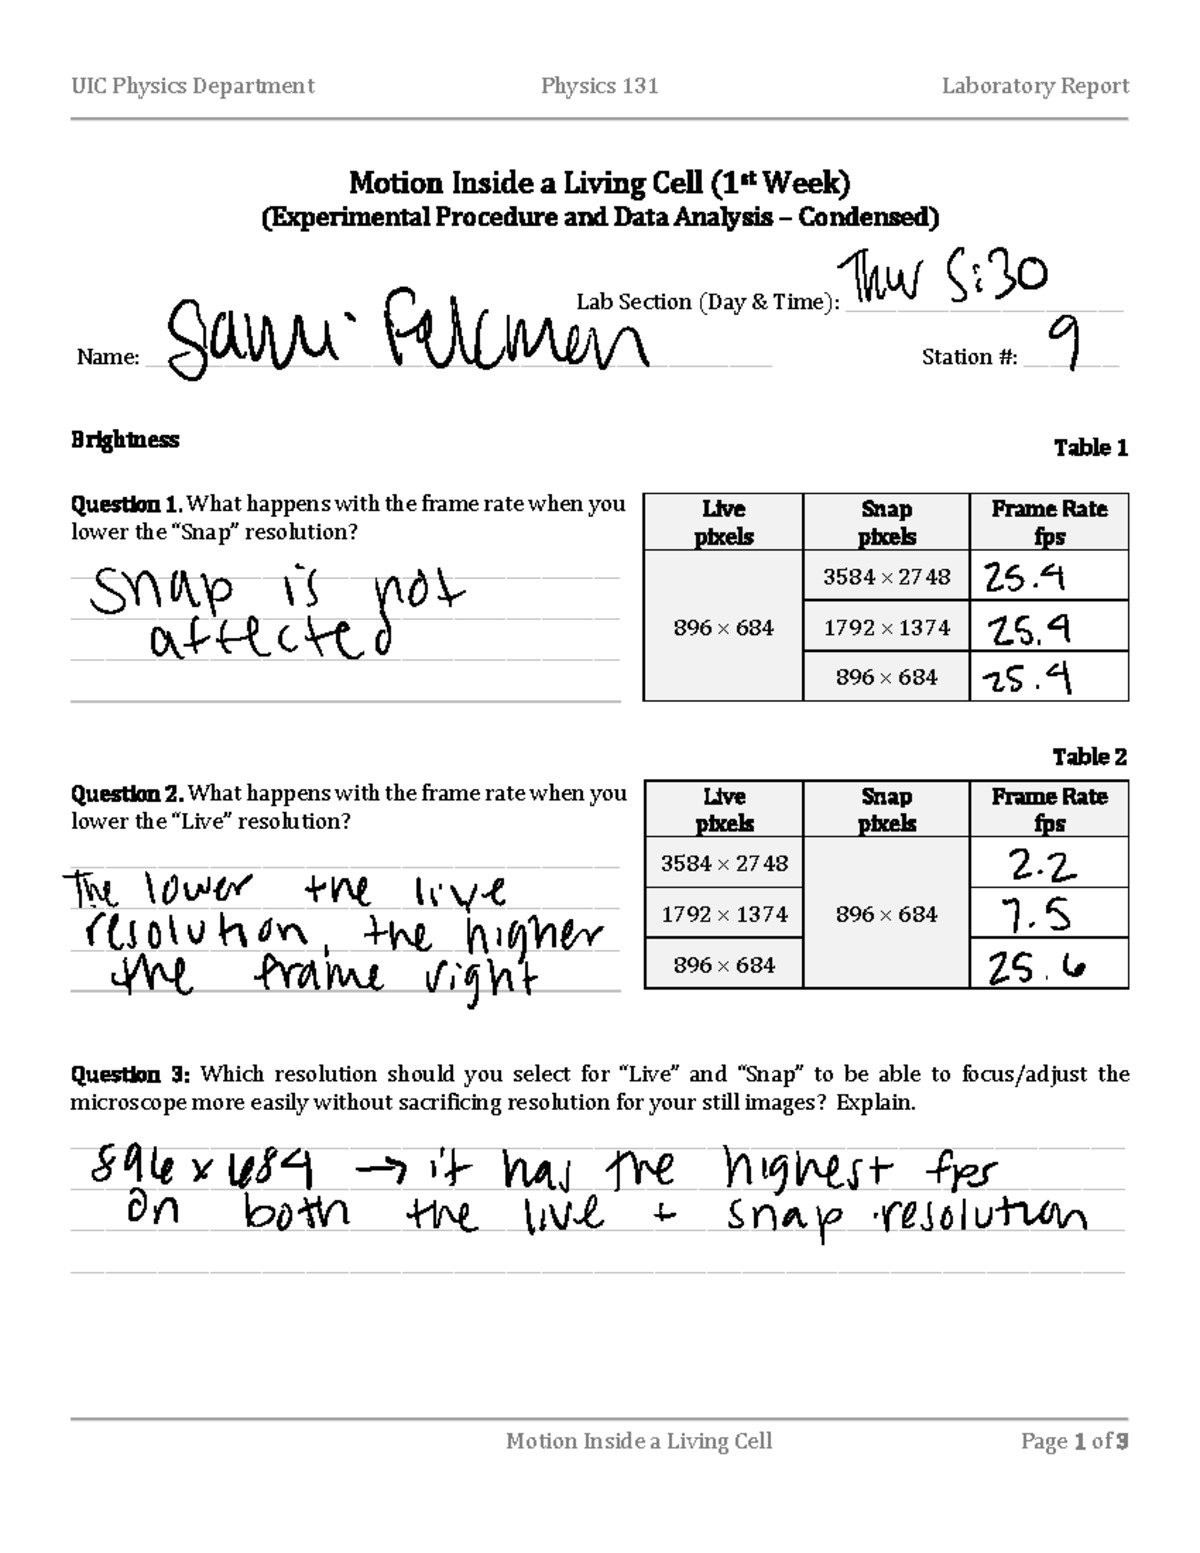 UIC Physics Department Physics 131 Laboratory Report
Motion Inside a Living Cell (1st Week)
(Experimental Procedure and Data Analysis – Condensed)
Lab Section (Day & Time): Thur 5:30
Name: Sami Station #: 9
Brightness
Table 1
Question 1. What happens with the frame rate when you
lower the “Snap” resolution?
Snap is not
affected
Live pixels Snap pixels Frame Rate fps
896 × 684
3584 × 2748 25.4
1792 × 1374 25.4
896 × 684 25.4
Table 2
Question 2. What happens with the frame rate when you
lower the “Live” resolution?
The lower the live
resolution, the higher
the frame right
Live pixels Snap pixels Frame Rate fps
3584 × 2748 2.2
1792 × 1374 896 × 684 7.5
896 × 684 25.6
Question 3: Which resolution should you select for “Live” and “Snap” to be able to focus/adjust the
microscope more easily without sacrificing resolution for your still images? Explain.
896 x 684 → it has the highest fps
on both the live + snap resolution
Motion Inside a Living Cell Page 1 of